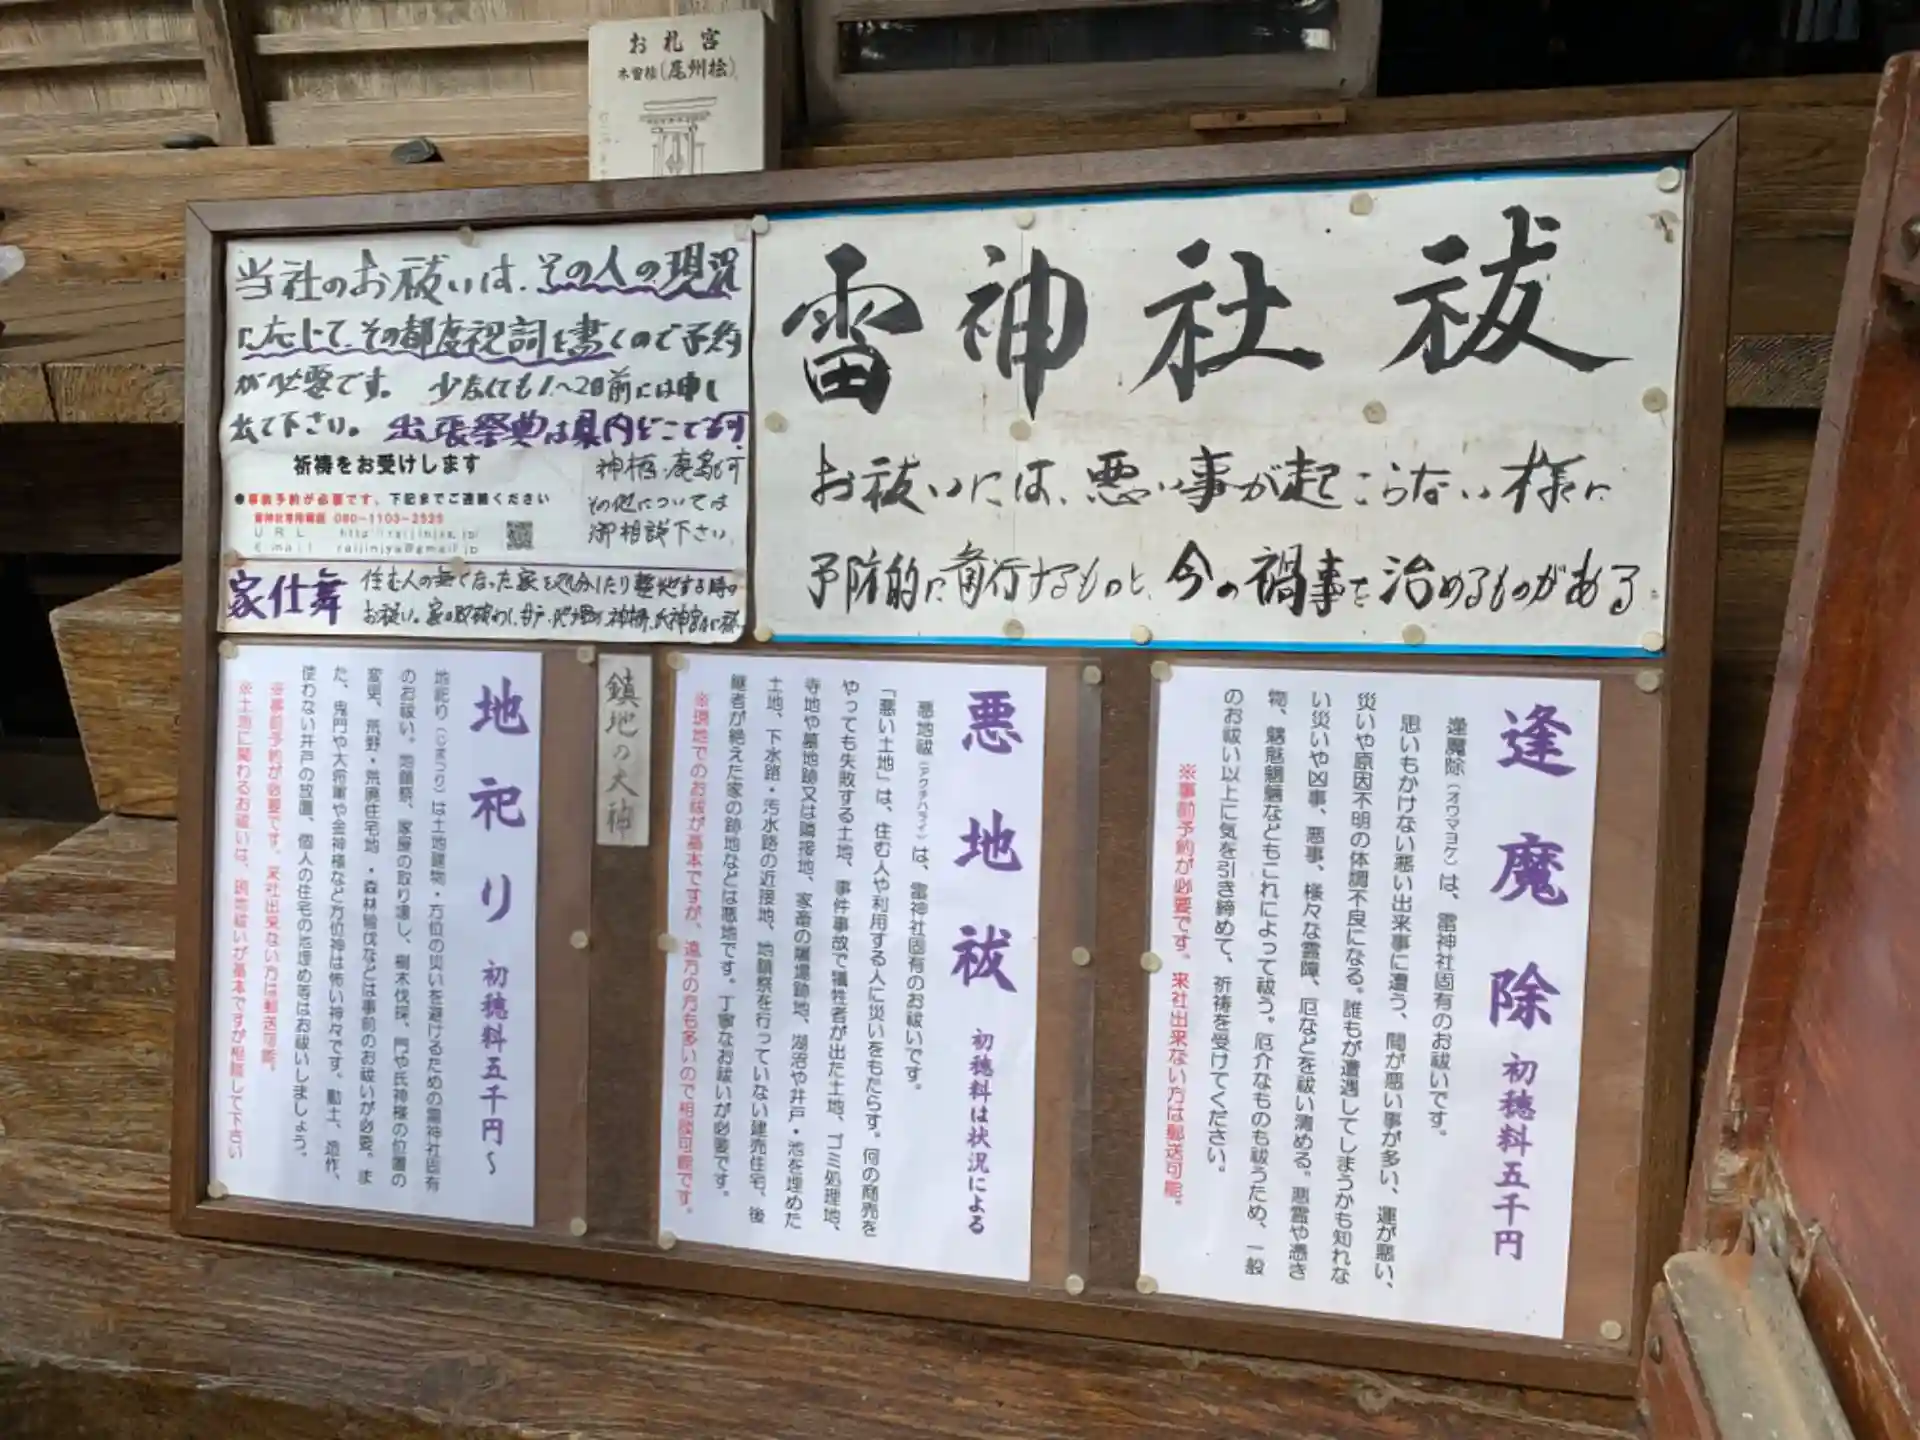 お札宮
木曽桧(尾州桧)
雷神社祓
お祓いには、悪い事が起こらない様に
予防的に斎行するものと、今の禍事を治めるものがある
当社のお祓いは、その人の現況
に応じて、その都度祝詞を書くので予約
が必要です。少なくても1~2日前には申し
出て下さい。出張祭典は県内どこでも可
祈祷をお受けします
●事前予約が必要です、下記までご連絡ください
雷神社専用電話 080-1103-2535
URL http://raijinjya.jp/
E-mail raijinjya@gmail.jp
神栖・鹿島可
その他については
御相談下さい。
家仕舞
住む人の無くなった家を処分したり整地する時の
お祓い。
逢魔除 初穂料五千円
逢魔除(オウマヨケ)は、雷神社固有のお祓いです。
思いもかけない悪い出来事に遭う、間が悪い事が多い、運が悪い、
災いや原因不明の体調不良になる。誰もが遭遇してしまうかも知れな
い災いや凶事、悪事、様々な霊障、厄などを祓い清める。悪霊や憑き
物、魑魅魍魎などもこれによって祓う。厄介なものも祓うため、一般
のお祓い以上に気を引き締めて、祈祷を受けてください。
※事前予約が必要です。来社出来ない方は郵送可能。
悪地祓 初穂料は状況による
悪地祓(アクチハライ)は、雷神社固有のお祓いです。
「悪い土地」は、住む人や利用する人に災いをもたらす。何の商売を
やっても失敗する土地、事件事故で犠牲者が出た土地、ゴミ処理地、
寺地や墓地跡又は隣接地、家畜の屠場跡地、湖沼や井戸・池を埋めた
土地、下水路・汚水路の近接地、地鎮祭を行っていない建売住宅、後
継者が絶えた家の跡地などは悪地です。丁寧なお祓いが必要です。
※現地でのお祓が基本ですが、遠方の方も多いので相談可能です。
鎮地の大神
地祀り 初穂料五千円~
地祀り(じまつり)は土地建物・方位の災いを避けるための雷神社固有
のお祓い。地鎮祭、家屋の取り壊し、樹木伐採、門や氏神様の位置の
変更、荒野・荒廃住宅地・森林伐などは事前のお祓いが必要。ま
た、鬼門や大将軍や金神様など方位神は怖い神々です。動土、造作、
使わない井戸の放置、個人の住宅の池埋め等はお祓いしましょう。
※事前予約が必要です。来社出来ない方は郵送可能。
※土地に関わるお祓いは、現地祓いが基本ですが相談して下さい